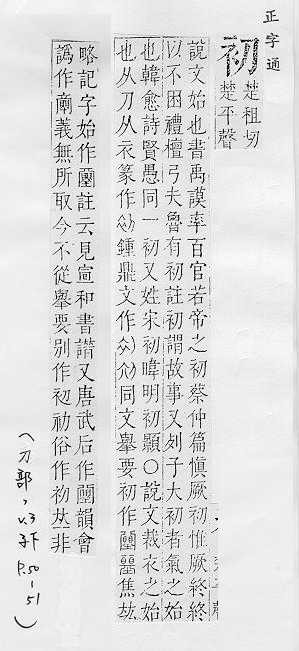 正字通
初
楚祖切
楚平聲
說文始也書禹謨率百官若帝之初蔡仲篇慎厥初惟厥終終
以不困禮檀弓夫魯有初註初謂故事又列子大初者氣之始
也韓愈詩賢愚同一初又姓宋初暐明初顯○說文裁衣之始
也从刀从衣篆作 鍾鼎文作 同文舉要初作 焦竑
略記字始作 註云見宣和書譜又唐武后作 韻會
譌作 義無所取今不從舉要別作 俗作 𠀤非
(刀部,
v.3
子下
p.50-
51)